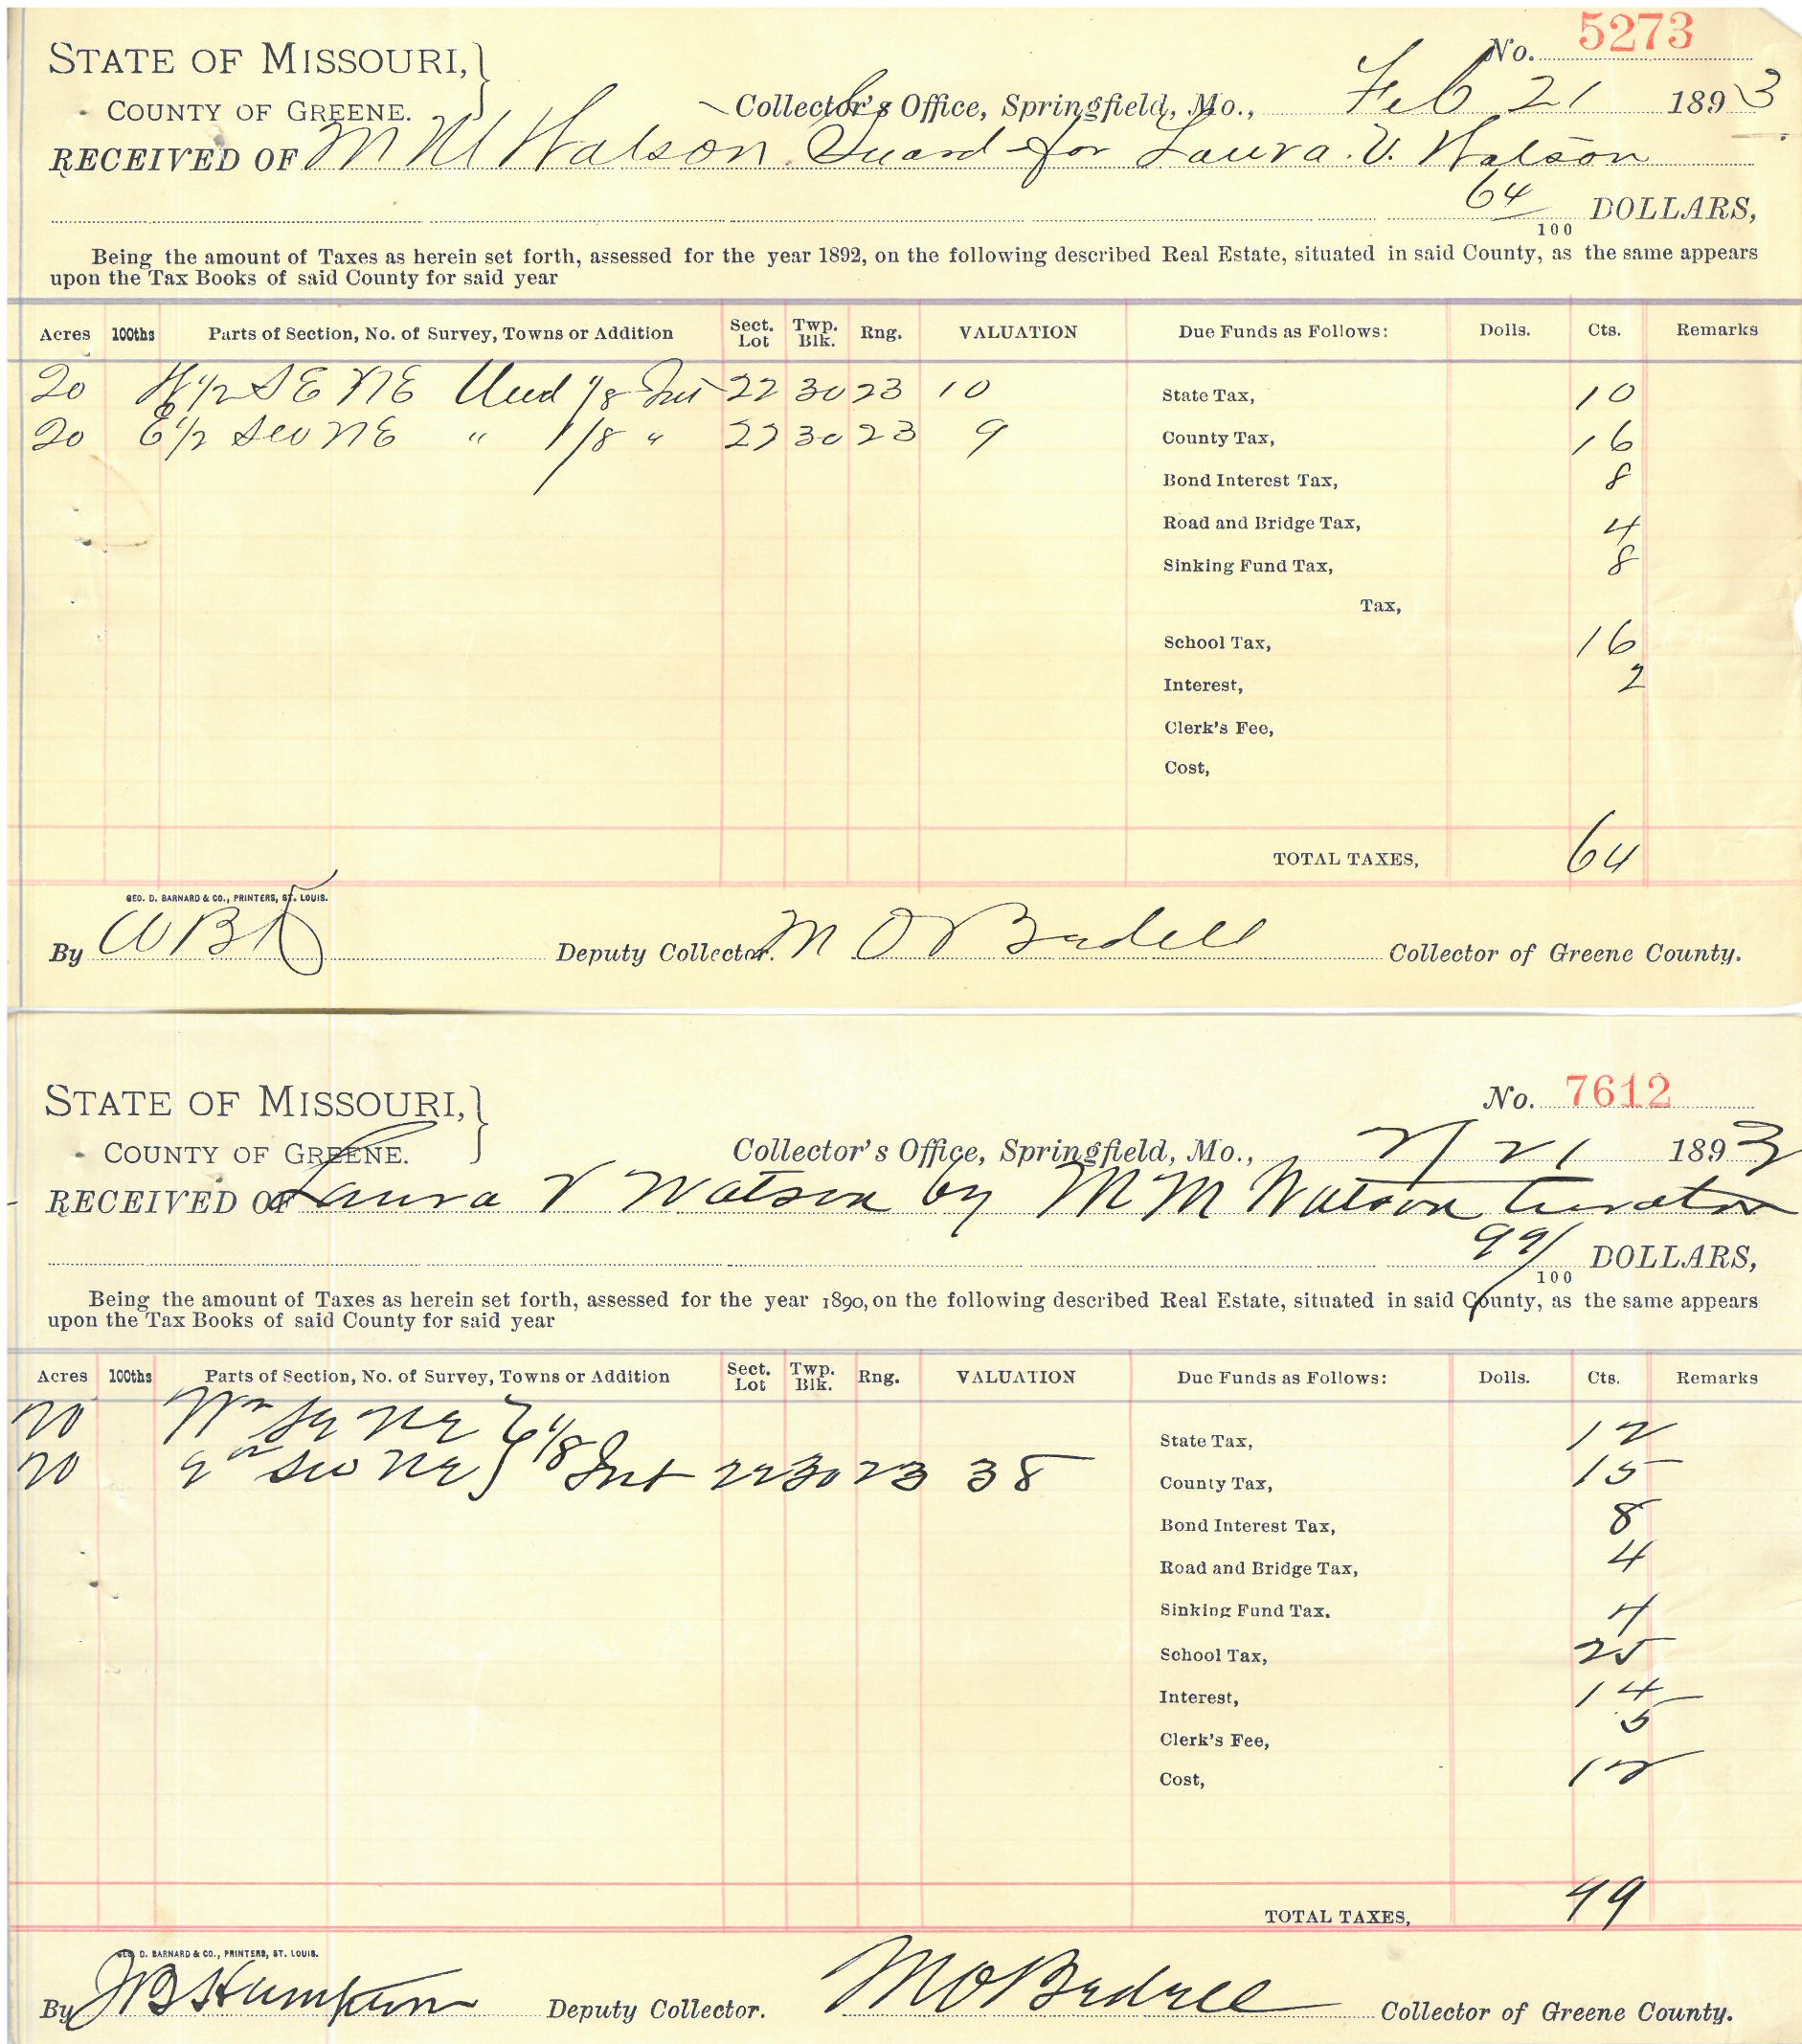 No. 5273
STATE OF MISSOURI,
COUNTY OF GREENE.
Collector's Office, Springfield, Mo., Feb 21 1893
RECEIVED OF M M Watson Guard for Laura. V. Watson
64/100 DOLLARS,
Being the amount of Taxes as herein set forth, assessed for the year 1892, on the following described Real Estate, situated in said County, as the same appears
upon the Tax Books of said County for said year
Acres 100ths Parts of Section, No. of Survey, Towns or Addition Sect. Lot Twp. Blk. Rng. VALUATION Due Funds as Follows: Dolls. Cts. Remarks
20 W 1/2 SE NE Und 1/8 Int 22 30 23 10 State Tax, 10
20 E 1/2 SW NE " 1/8 " 22 30 23 9 County Tax, 16
Bond Interest Tax, 8
Road and Bridge Tax, 4
Sinking Fund Tax, 8
Tax,
School Tax, 16
Interest, 2
Clerk's Fee,
Cost,
TOTAL TAXES, 64
GEO. D. BARNARD & CO., PRINTERS, ST. LOUIS.
By Deputy Collector. Collector of Greene County.
No. 7612
STATE OF MISSOURI,
COUNTY OF GREENE.
Collector's Office, Springfield, Mo., 2/21 1893
RECEIVED OF Laura V Watson by M M Watson Curator
99/100 DOLLARS,
Being the amount of Taxes as herein set forth, assessed for the year 1890, on the following described Real Estate, situated in said County, as the same appears
upon the Tax Books of said County for said year
Acres 100ths Parts of Section, No. of Survey, Towns or Addition Sect. Lot Twp. Blk. Rng. VALUATION Due Funds as Follows: Dolls. Cts. Remarks
20 W 1/2 SE NE State Tax, 12
20 E 1/2 SW NE } 1/8 Int 22 30 23 38 County Tax, 15
Bond Interest Tax, 8
Road and Bridge Tax, 4
Sinking Fund Tax. 4
School Tax, 25
Interest, 14
Clerk's Fee, 5
Cost, 12
TOTAL TAXES, 99
GEO. D. BARNARD & CO., PRINTERS, ST. LOUIS.
By Deputy Collector. Collector of Greene County.